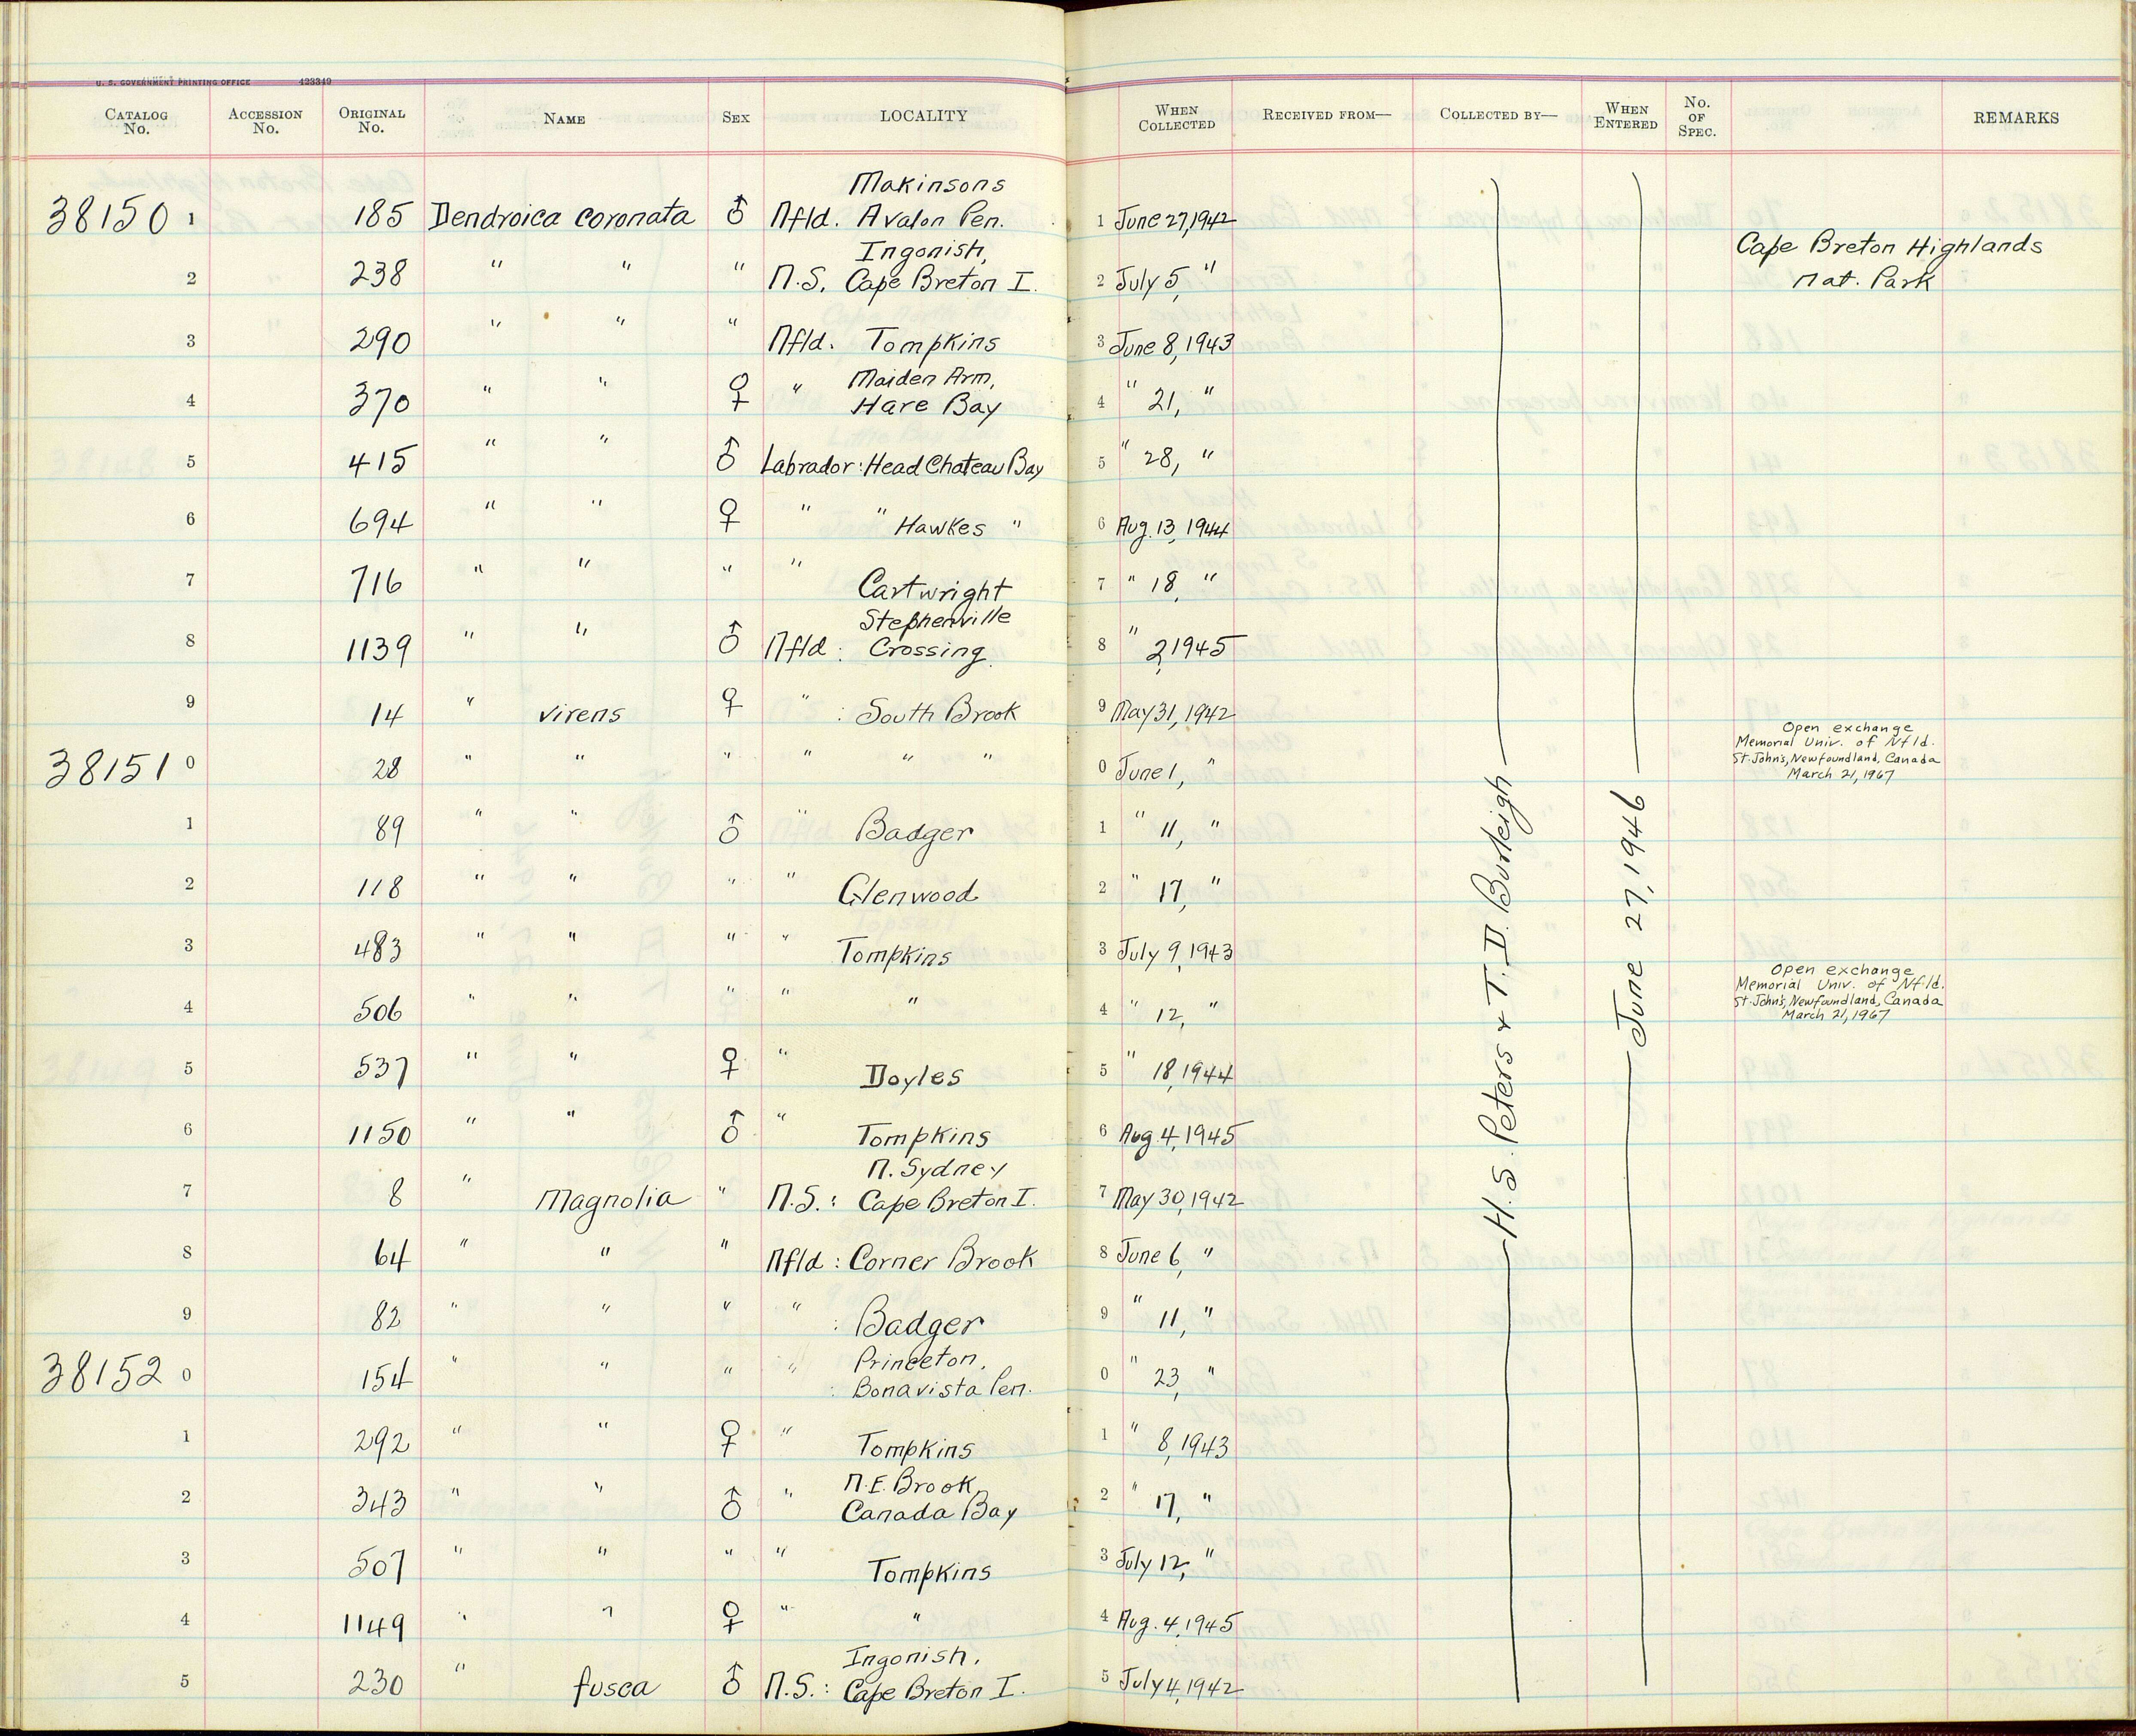 U. S. GOVERNMENT PRINTING OFFICE 423349
CATALOG No. ACCESSION No. ORIGINAL No. NAME SEX LOCALITY WHEN COLLECTED RECEIVED FROM— COLLECTED BY— WHEN ENTERED No. OF SPEC. REMARKS
Makinsons
38150 1 185 Dendroica coronata ♂ Nfld. Avalon Pen. 1 June 27, 1942
Ingonish, Cape Breton Highlands
2 238 " " " N.S. Cape Breton I. 2 July 5, " Nat. Park
3 290 " " " Nfld. Tompkins 3 June 8, 1943
Maiden Arm,
4 370 " " ♀ " Hare Bay 4 " 21, "
5 415 " " ♂ Labrador: Head Chateau Bay 5 " 28, "
6 694 " " ♀ " " Hawkes " 6 Aug. 13, 1944
7 716 " " " " Cartwright 7 " 18, "
Stephenville
8 1139 " " ♂ Nfld: Crossing 8 " 2, 1945
9 14 " virens ♀ " : South Brook 9 May 31, 1942
Open exchange
Memorial Univ. of Nfld.
38151 0 28 " " " " " " 0 June 1, " St. John's, Newfoundland, Canada
March 21, 1967
1 89 " " ♂ " Badger 1 " 11, "
2 118 " " " " Glenwood 2 " 17, "
3 483 " " " " Tompkins 3 July 9, 1943
Open exchange
Memorial Univ. of Nfld.
4 506 " " " " " 4 " 12, " St. John's, Newfoundland, Canada
March 21, 1967
5 537 " " ♀ " Doyles 5 " 18, 1944
6 1150 " " ♂ " Tompkins 6 Aug. 4, 1945
N. Sydney
7 8 " Magnolia " N.S.: Cape Breton I. 7 May 30, 1942
8 64 " " " Nfld: Corner Brook 8 June 6, "
9 82 " " " " : Badger 9 " 11, "
Princeton,
38152 0 154 " " " " : Bonavista Pen. 0 " 23, "
1 292 " " ♀ " Tompkins 1 " 8, 1943
N.E. Brook,
2 343 " " ♂ " Canada Bay 2 " 17, "
3 507 " " " " Tompkins 3 July 12, "
4 1149 " " ♀ " " 4 Aug. 4, 1945
Ingonish,
5 230 " fusca ♂ N.S.: Cape Breton I. 5 July 4, 1942
H. S. Peters & T. D. Burleigh
June 27, 1946